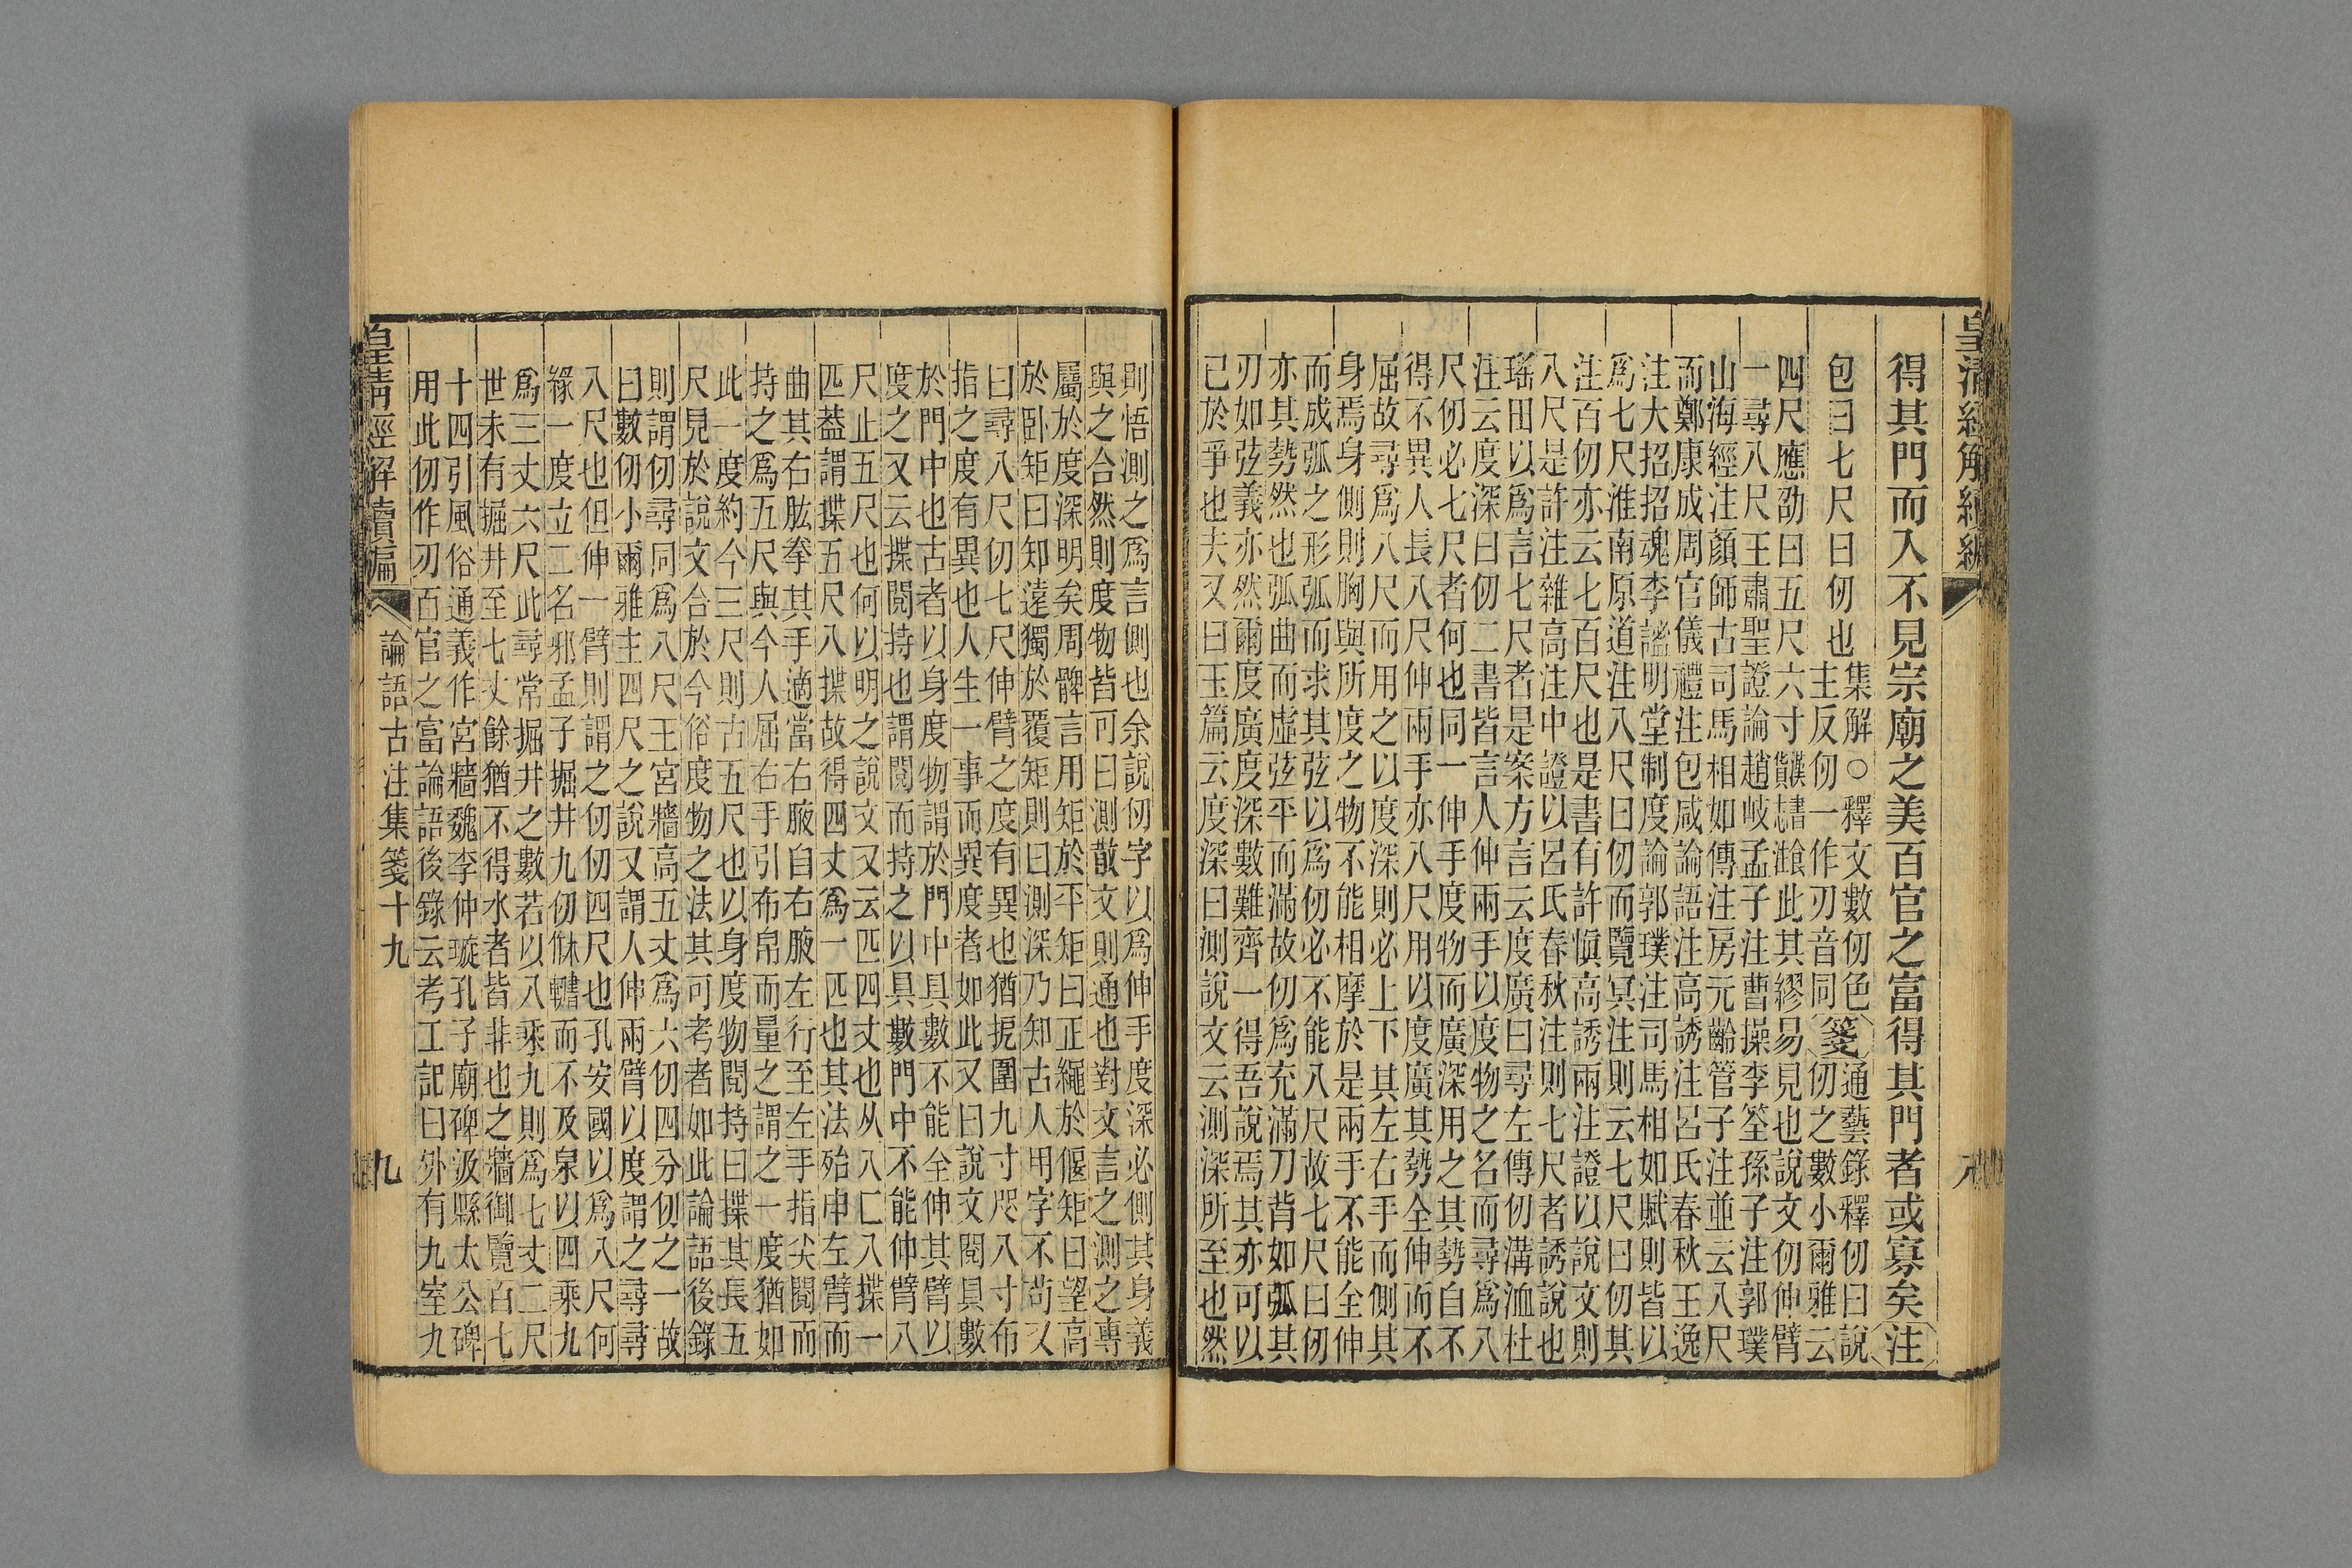 皇清經解續編
得其門而入不見宗廟之美百官之富得其門者或寡矣注
包曰七尺曰仞也
集解○釋文數仞色
主反仞一作刃音同
箋
通藝錄釋仞曰說
仞之數小爾雅云
四尺應劭曰五尺六寸此其繆易見也說文仞伸臂
一尋八尺王肅聖證論趙岐孟子注曹操李筌孫子注郭璞
山海經注顏師古司馬相如傳注房元齡管子注並云八尺
而鄭康成周官儀禮注包咸論語注高誘注呂氏春秋王逸
注大招招魂李謐明堂制度論郭璞注司馬相如賦則皆以
爲七尺淮南原道注八尺曰仞而覽冥注則云七尺曰仞其
注百仞亦云七百尺也是書有許愼高誘兩注證以說文則
八尺是許注雜高注中證以呂氏春秋注則七尺者誘說也
瑤田以爲言七尺者是案方言云度廣曰尋左傳仞溝洫杜
注云度深曰仞二書皆言人伸兩手以度物之名而尋爲八
尺仞必七尺者何也同一伸手度物而廣深用之其勢自不
得不異人長八尺伸兩手亦八尺用以度廣其勢全伸而不
屈故尋爲八尺而用之以度深則必上下其左右手而側其
身焉身側則胸與所度之物不能相摩於是兩手不能全伸
而成弧之形弧而求其弦以爲仞必不能八尺故七尺曰仞
亦其勢然也弧曲而虛弦平而滿故仞爲充滿刀背如弧其
刃如弦義亦然爾度廣度深數難齊一得吾說焉其亦可以
已於爭也夫又曰玉篇云度深曰測說文云測深所至也然
則悟測之爲言側也余說仞字以爲伸手度深必側其身義
與之合然則度物皆可曰測散文則通也對文言之測之專
屬於度深明矣周髀言用矩於平矩曰正繩於偃矩曰望高
於臥矩曰知遠獨於覆矩則曰測深乃知古人用字不苟又
曰尋八尺仞七尺伸臂之度有異也猶扼圍九寸咫八寸布
指之度有異也人生一事而異度者如此又曰說文閱具數
於門中也古者以身度物謂於門中具數不能全伸其臂以
度之又云揲閱持也謂閱而持之以具數門中不能伸臂八
尺止五尺也何以明之說文又云匹四丈也从八匸八揲一
匹葢謂揲五尺八揲故得四丈爲一匹也其法殆申左臂而
曲其右肱拳其手適當右腋自右腋左行至左手指尖閱而
持之爲五尺與今人屈右手引布帛而量之謂之一度猶如
此一度約今三尺則古五尺也以身度物閱持曰揲其長五
尺見於說文合於今俗度物之法其可考者如此論語後錄
則謂仞尋同爲八尺王宮牆高五丈爲六仞四分仞之一故
曰數仞小爾雅主四尺之說又謂人伸兩臂以度謂之尋尋
八尺也但伸一臂則謂之仞仞四尺也孔安國以爲八尺何
緣一度立二名邪孟子掘井九仞而不及泉以四乘九
爲三丈六尺此尋常掘井之數若以八乘九則爲七丈二尺
世未有掘井至七丈餘猶不得水者皆非也之牆御覽百七
十四引風俗通義作宮牆魏李仲璇孔子廟碑汲縣太公碑
用此仞作刃百官之富論語後錄云考工記曰外有九室九
皇清經解續編
論語古注集箋十九
九